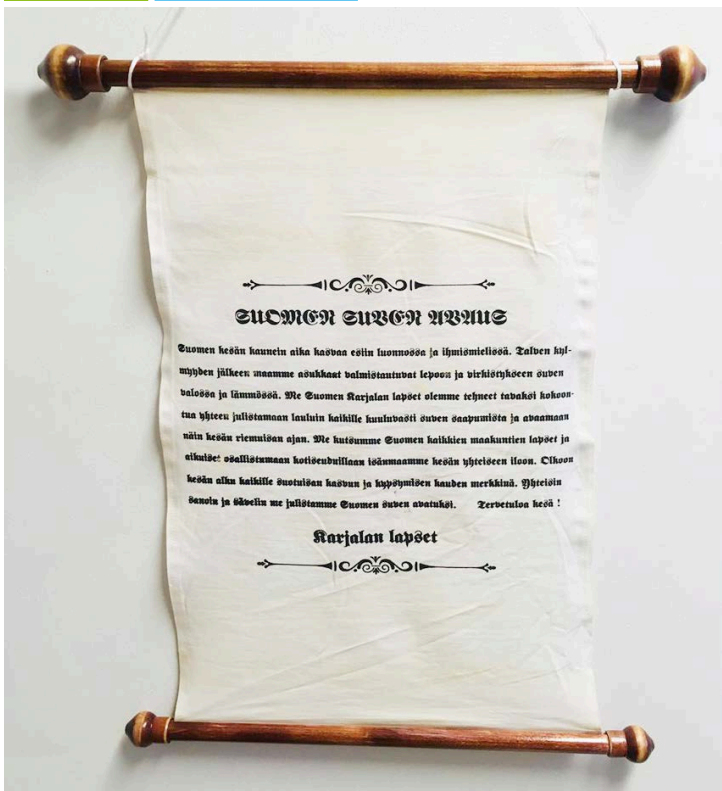 SUOMEN SUVEN AVAUS
Suomen kesän kaunein aika kasvaa esiin luonnossa ja ihmismielissä. Talven kyl-
myyden jälkeen maamme asukkaat valmistautuvat lepoon ja virkistykseen suven
valossa ja lämmössä. Me Suomen Karjalan lapset olemme tehneet tavaksi kokoon-
tua yhteen julistamaan lauluin kaikille kuuluvasti suven saapumista ja avaamaan
näin kesän riemuisan ajan. Me kutsumme Suomen kaikkien maakuntien lapset ja
aikuiset osallistumaan kotiseuduillaan isänmaamme kesän yhteiseen iloon. Olkoon
kesän alku kaikille suotuisan kasvun ja kypsymisen kauden merkkinä. Yhteisin
sanoin ja sävelin me julistamme Suomen suven avatuksi. Tervetuloa kesä !
Karjalan lapset